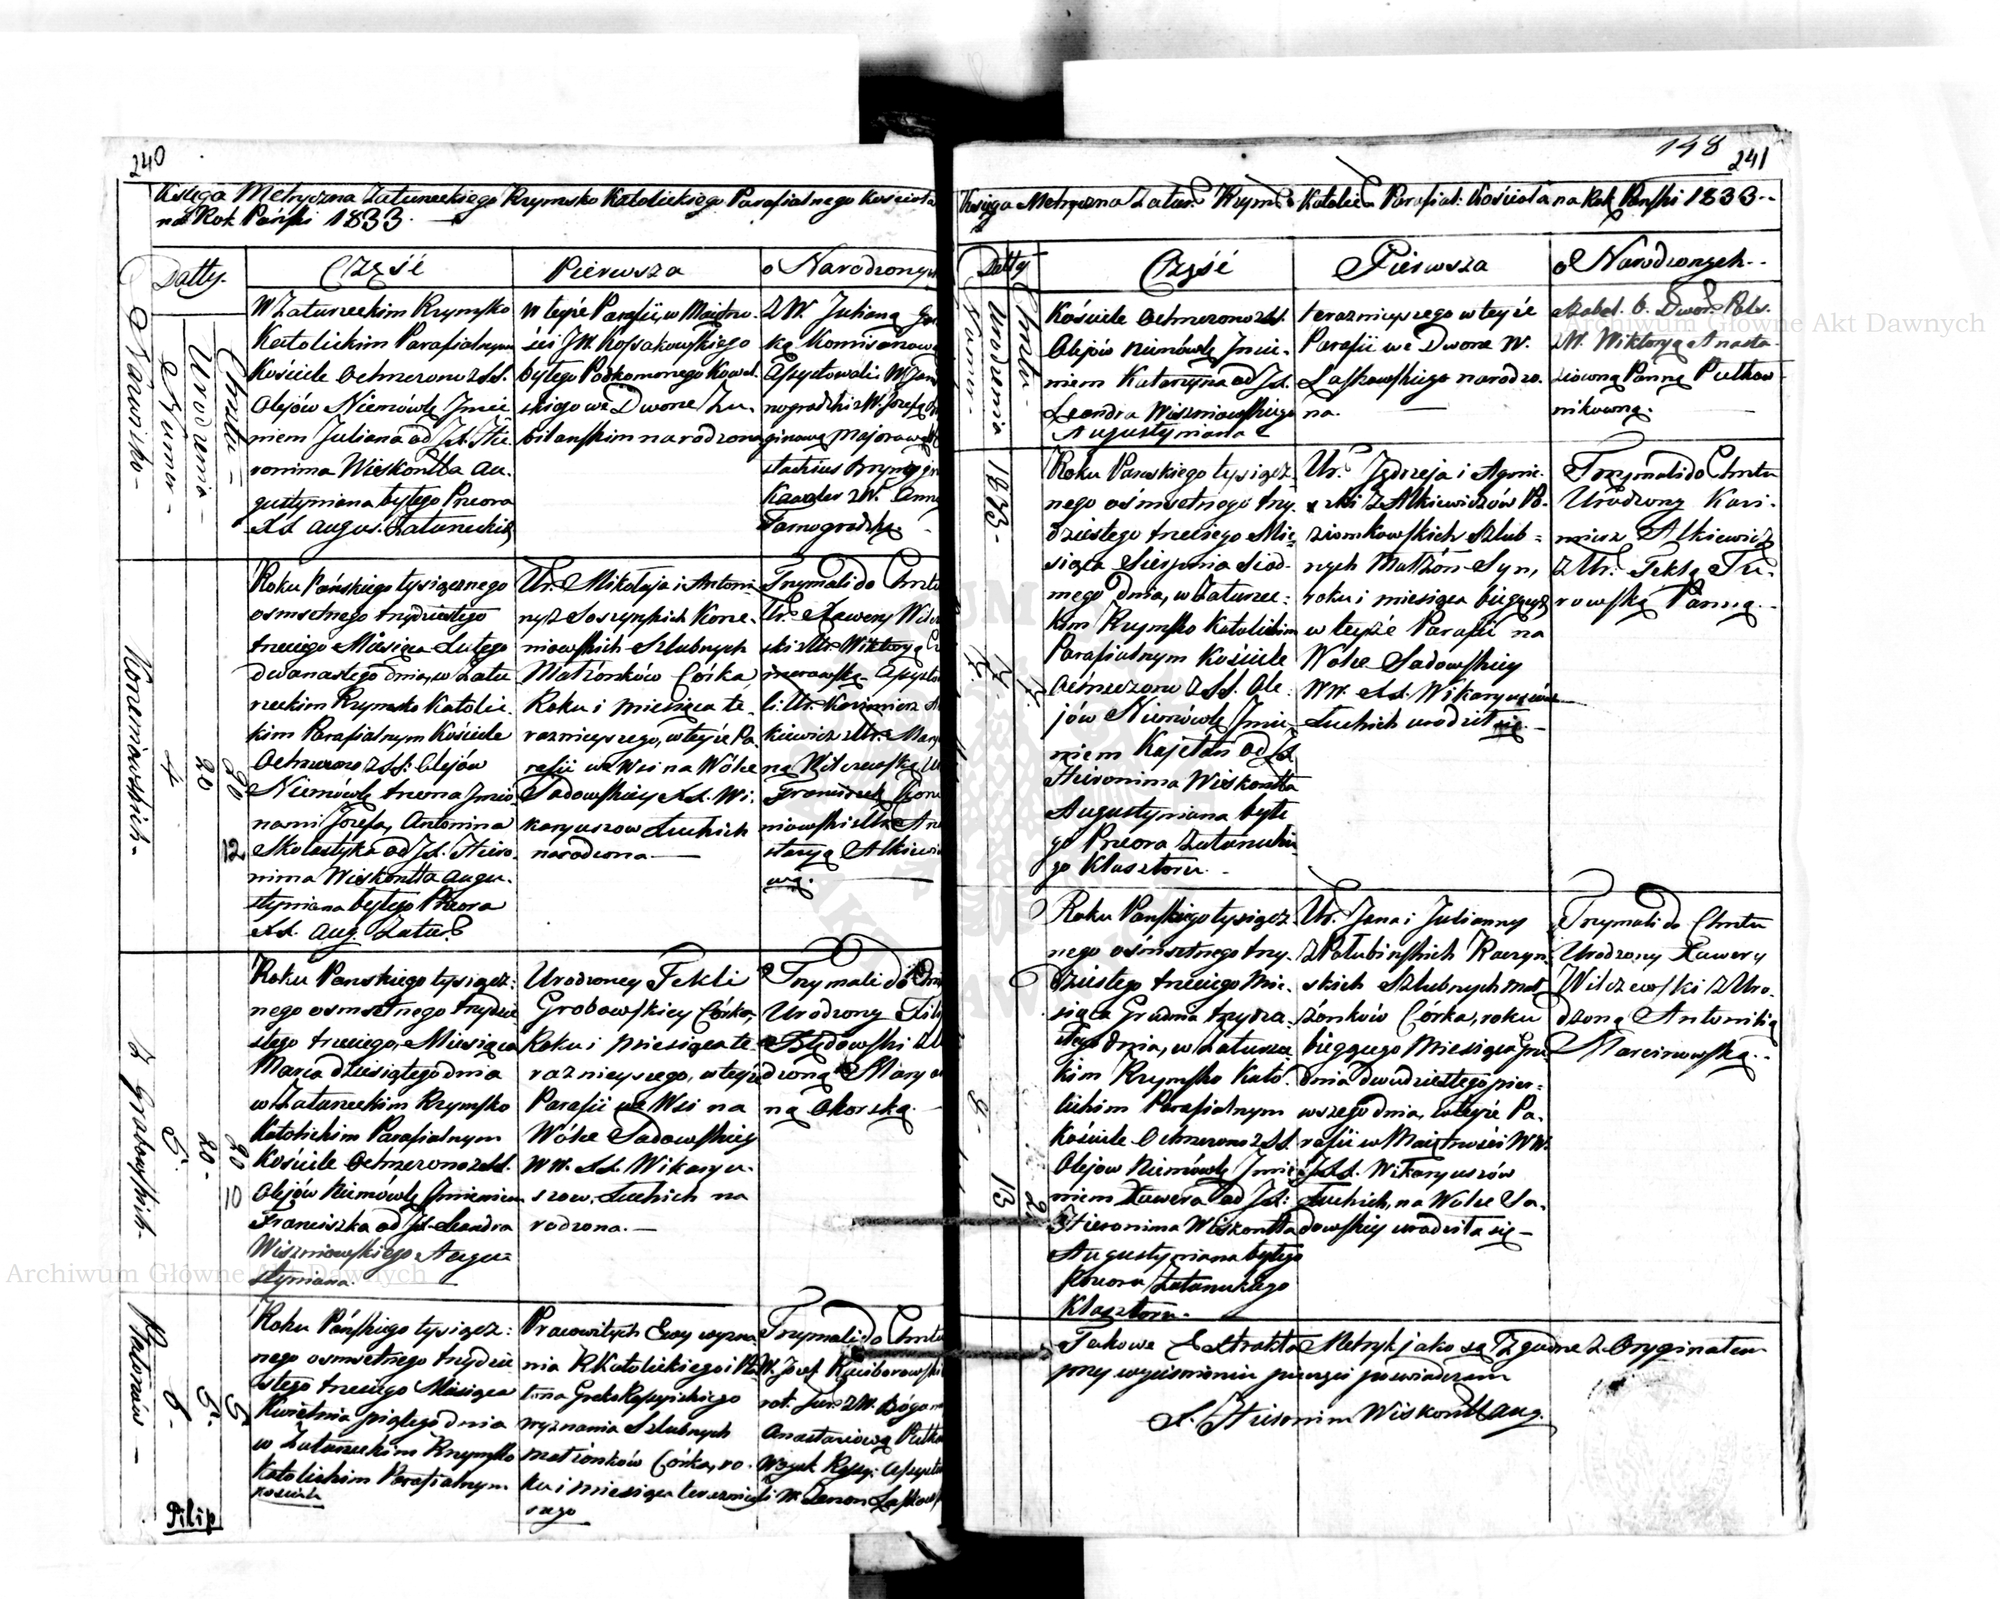 240
Księga Metryczna Zaturzeckiego Rzymsko Katolickiego Parafialnego Kościoła
na Rok Pański 1833.
Datty.
Część
Pierwsza
o Narodzonych
Numer
Urodzenia
Chrztu
W Zaturzeckim Rzymsko
Katolickim Parafialnym
Kościele Ochrzczono z SS.
Olejów Niemówlę Imie
niem Juliana od JX. Hie
ronima Wiskontta Au
gustyniana byłego Przeora
XX. Augus. Zaturzeckich
w teyże Parafii, w Majętno
ści JW Kossakowskiego
byłego Podkomorzego Kowel
skiego we Dworze Zu
bilańskim narodzona
z W. Julianą
ką Komisarzową
Asystowali W Jan
nogradzki z W. Józefą
ginową Majorową
stachiusz
Kawaler z W. Anną
Tarnogradzką.
Konemiowskich
4
20
20
12
Roku Pańskiego tysiącznego
osmsetnego trzydziestego
trzeciego Miesiąca Lutego
dwunastego dnia, w Zatu
rzeckim Rzymsko Katolic
kim Parafialnym Kościele
Ochrzczono z SS: Olejów
Niemówlę trzema Imio
nami Józefa, Antonina
Skolastyka od JX. Hiero
nima Wiskontta Augu
styniana byłego Przeora
XX. Aug. Zatur.
Ur. Mikołaja i Antoni
ny z Soszyńskich Kone
miowskich Szlubnych
Małżonków Córka
Roku i Miesiąca te
raznieyszego, w teyże Pa
rafii we Wsi na Wólce
Sadowskiey XX. Wi
karyuszow Łuckich
narodzona
Trzymali do Chrztu
Ur. Xawery Wilcze
ski z Ur. Wiktoryą
merowską. Asystow
li: Ur. Kazimierz Al
kiewicz z Ur. Mary
ną Wilczewską
Franciszek Kone
miowski z Ur. Ana
stazyą Alkiewi
wą.
Z Grabowskich
5.
20.
20
10
Roku Pańskiego tysiącz
nego osmsetnego trzydzie
stego trzeciego, Miesiąca
Marca dziesiątego dnia
w Zaturzeckim Rzymsko
Katolickim Parafialnym
Kościele Ochrzczono z SS.
Olejów Niemówlę Imieniem
Franciszka od JX. Leandra
Wiszniowskiego Augu
styniana.
Urodzoney Tekli
Grobowskiey Córka,
Roku i Miesiąca te
raznieyszego, w teyże
Parafii we Wsi na
Wólce Sadowskiey
WW. XX. Wikaryu
szow, Łuckich na
rodzona.
Trzymali do Chrz
Urodzony Fili
Będowski z U
dzoną Mary
ną Okorską.
6
5.
5
Roku Pańskiego tysiącz
nego osmsetnego trzydzie
stego trzeciego Miesiąca
Kwietnia piątego dnia
w Zaturzeckim Rzymsko
Katolickim Parafialnym
Kościele
Pracowitych Ewy wyzna
nia R Katolickiego i
tona Greko Rossyiskiego
wyznania Szlubnych
Małżonków Córka, ro
ku i miesiąca terazniey
szego
Trzymali do Chrztu
W. Józef Raciborowski
rot. Jur. z W.
Anastaziową Pułko
Woysk Rossy: Asysto
li W Zenon Laskowsk
Filip
148
241
Księga Metryczna Zatur. Rzyms Katolic Parafial: Kościoła na Rok Pański 1833
Datty
Część
Pierwsza
o Narodzonych
Numer
Urodzenia
Chrztu
Kościele Ochrzczono z SS.
Olejów Niemówlę Imie
niem Katarzyna od JX.
Leandra Wiszniowskiego
Augustyniana
teraznieyszego w teyże
Parafii we Dworze W.
Laskowskiego narodzo
na.
z W. Wiktoryą Anasta
ziówną Panną Pułkow
nikowną.
1833
7.
Roku Pańskiego tysiącz
nego osmsetnego trzy
dziestego trzeciego Mie
siąca Sierpnia siód
mego dnia, w Zaturzec
kim Rzymsko Katolickim
Parafialnym Kościele
Ochrzczono z SS. Ole
jów Niemówlę Imie
niem Kajetan od JX.
Hieronima Wiskontta
Augustyniana byłe
go Przeora Zaturzeckie
go Klasztoru.
Ur. Jędrzeja i Agnie
szki z Alkiewiczów Po
ziomkowskich Szlub
nych Małżon. Syn,
roku i miesiąca bieżącego
w teyże Parafii na
Wólce Sadowskiey
WW. XX. Wikaryuszów
Łuckich urodził się
Trzymali do Chrztu
Urodzony Kazi
mierz Alkiewicz
z Ur: Teklą Tu
rowską Panną.
13
Roku Pańskiego tysiącz
nego ośmsetnego trzy
dziestego trzeciego Mie
siąca Grudnia trzydzie
stego dnia, w Zaturzec
kim Rzymsko Kato
lickim Parafialnym
Kościele Ochrzczono z SS.
Olejów Niemówlę Imie
niem Xawera od JX:
Hieronima Wiskontta
Augustyniana byłego
Przeora Zaturzeckiego
Klasztoru.
Ur. Jana i Julianny
z Połubińskich Raczyn
skich Szlubnych Mał
żonków Córka, roku
bieżącego Miesiąca Gru
dnia dwudziestego pier
wszego dnia, w teyże Pa
rafii w Majętności WW.
JXX. Wikaryuszów
Łuckich, na Wólce Sa
dowskiey urodziła się
Trzymali do Chrztu
Urodzony Xawery
Wilczewski z Uro
dzoną Antoniną
Marcinowską.
Takowe Extrakta Metryk jako są Zgodne z Oryginałem
przy wyciśnieniu pieczęci poświadczam
X. Hieronim Wiskontt Aug.
Archiwum Główne Akt Dawnych
Archiwum Główne Akt Dawnych